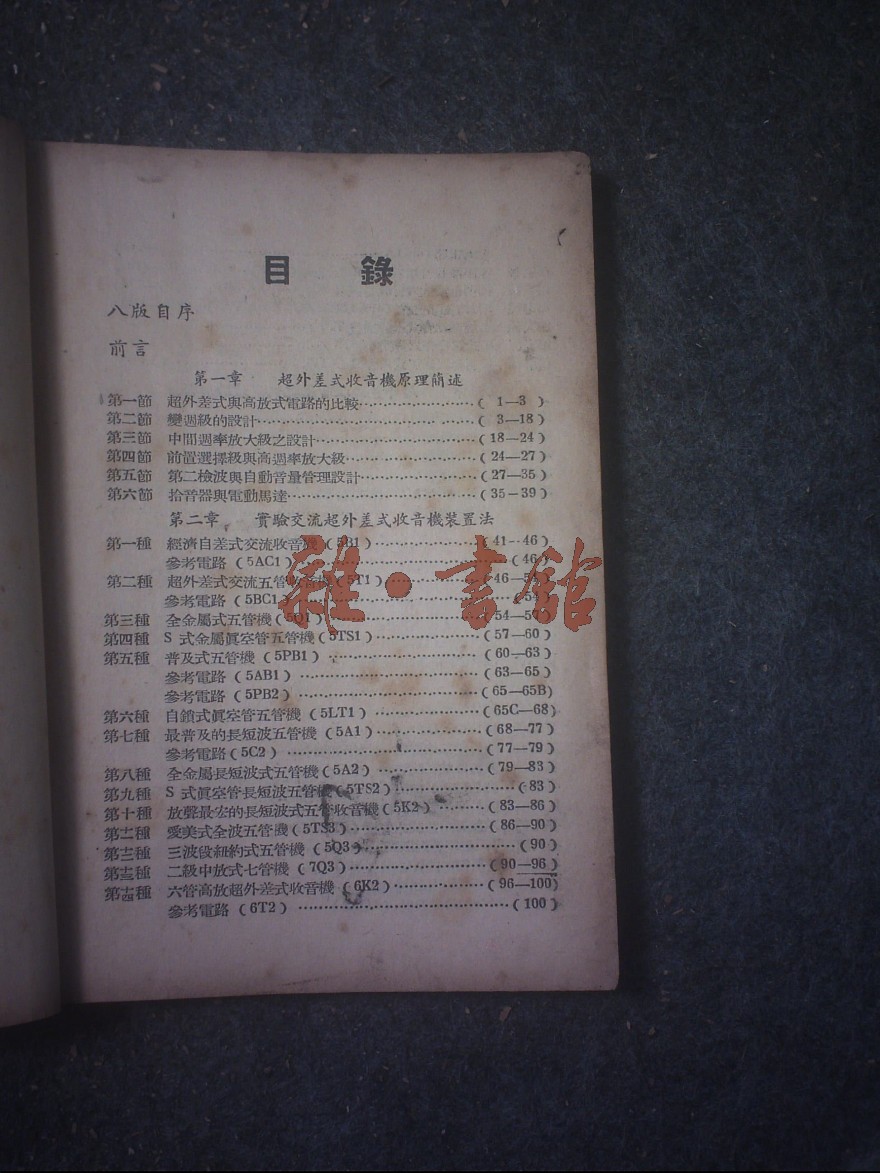 目 錄
八版自序
前言
第一章 超外差式收音機原理簡述
第一節 超外差式與高放式電路的比較……………………( 1—3 )
第二節 變週級的設計……………………( 3—18 )
第三節 中間週率放大級之設計……………………( 18—24 )
第四節 前置選擇級與高週率放大級……………………( 24—27 )
第五節 第二檢波與自動音量管理設計……………………( 27—35 )
第六節 拾音器與電動馬達……………………( 35—39 )
第二章 實驗交流超外差式收音機裝置法
第一種 經濟自差式交流收音機 (5B1)……………………( 41—46 )
參考電路 (5AC1)……………………( 46 )
第二種 超外差式交流五管收音機 (5T1)……………………( 46—
參考電路 (5BC1)……………………
第三種 全金屬式五管機 ……………………( 54—
第四種 S 式金屬眞空管五管機 (5TS1)……………………( 57—60 )
第五種 普及式五管機 (5PB1)……………………( 60—63 )
參考電路 (5AB1)……………………( 63—65 )
參考電路 (5PB2)……………………( 65—65B)
第六種 自鎖式眞空管五管機 (5LT1)……………………( 65C—68)
第七種 最普及的長短波五管機 (5A1)……………………( 68—77 )
參考電路 (5C2)……………………( 77—79 )
第八種 全金屬長短波式五管機 (5A2)……………………( 79—83 )
第九種 S 式眞空管長短波五管機 (5TS2)……………………( 83 )
第十種 放聲最宏的長短波式五管收音機 (5K2)……………………( 83—86 )
第十一種 愛美式全波五管機 (5TS3)……………………( 86—90 )
第十二種 三波段紐約式五管機 (5Q3)……………………( 90 )
第十三種 二級中放式七管機 (7Q3)……………………( 90—96 )
第十四種 六管高放超外差式收音機 (6K2)……………………( 96—100)
參考電路 (6T2)……………………( 100 )
雜·書館